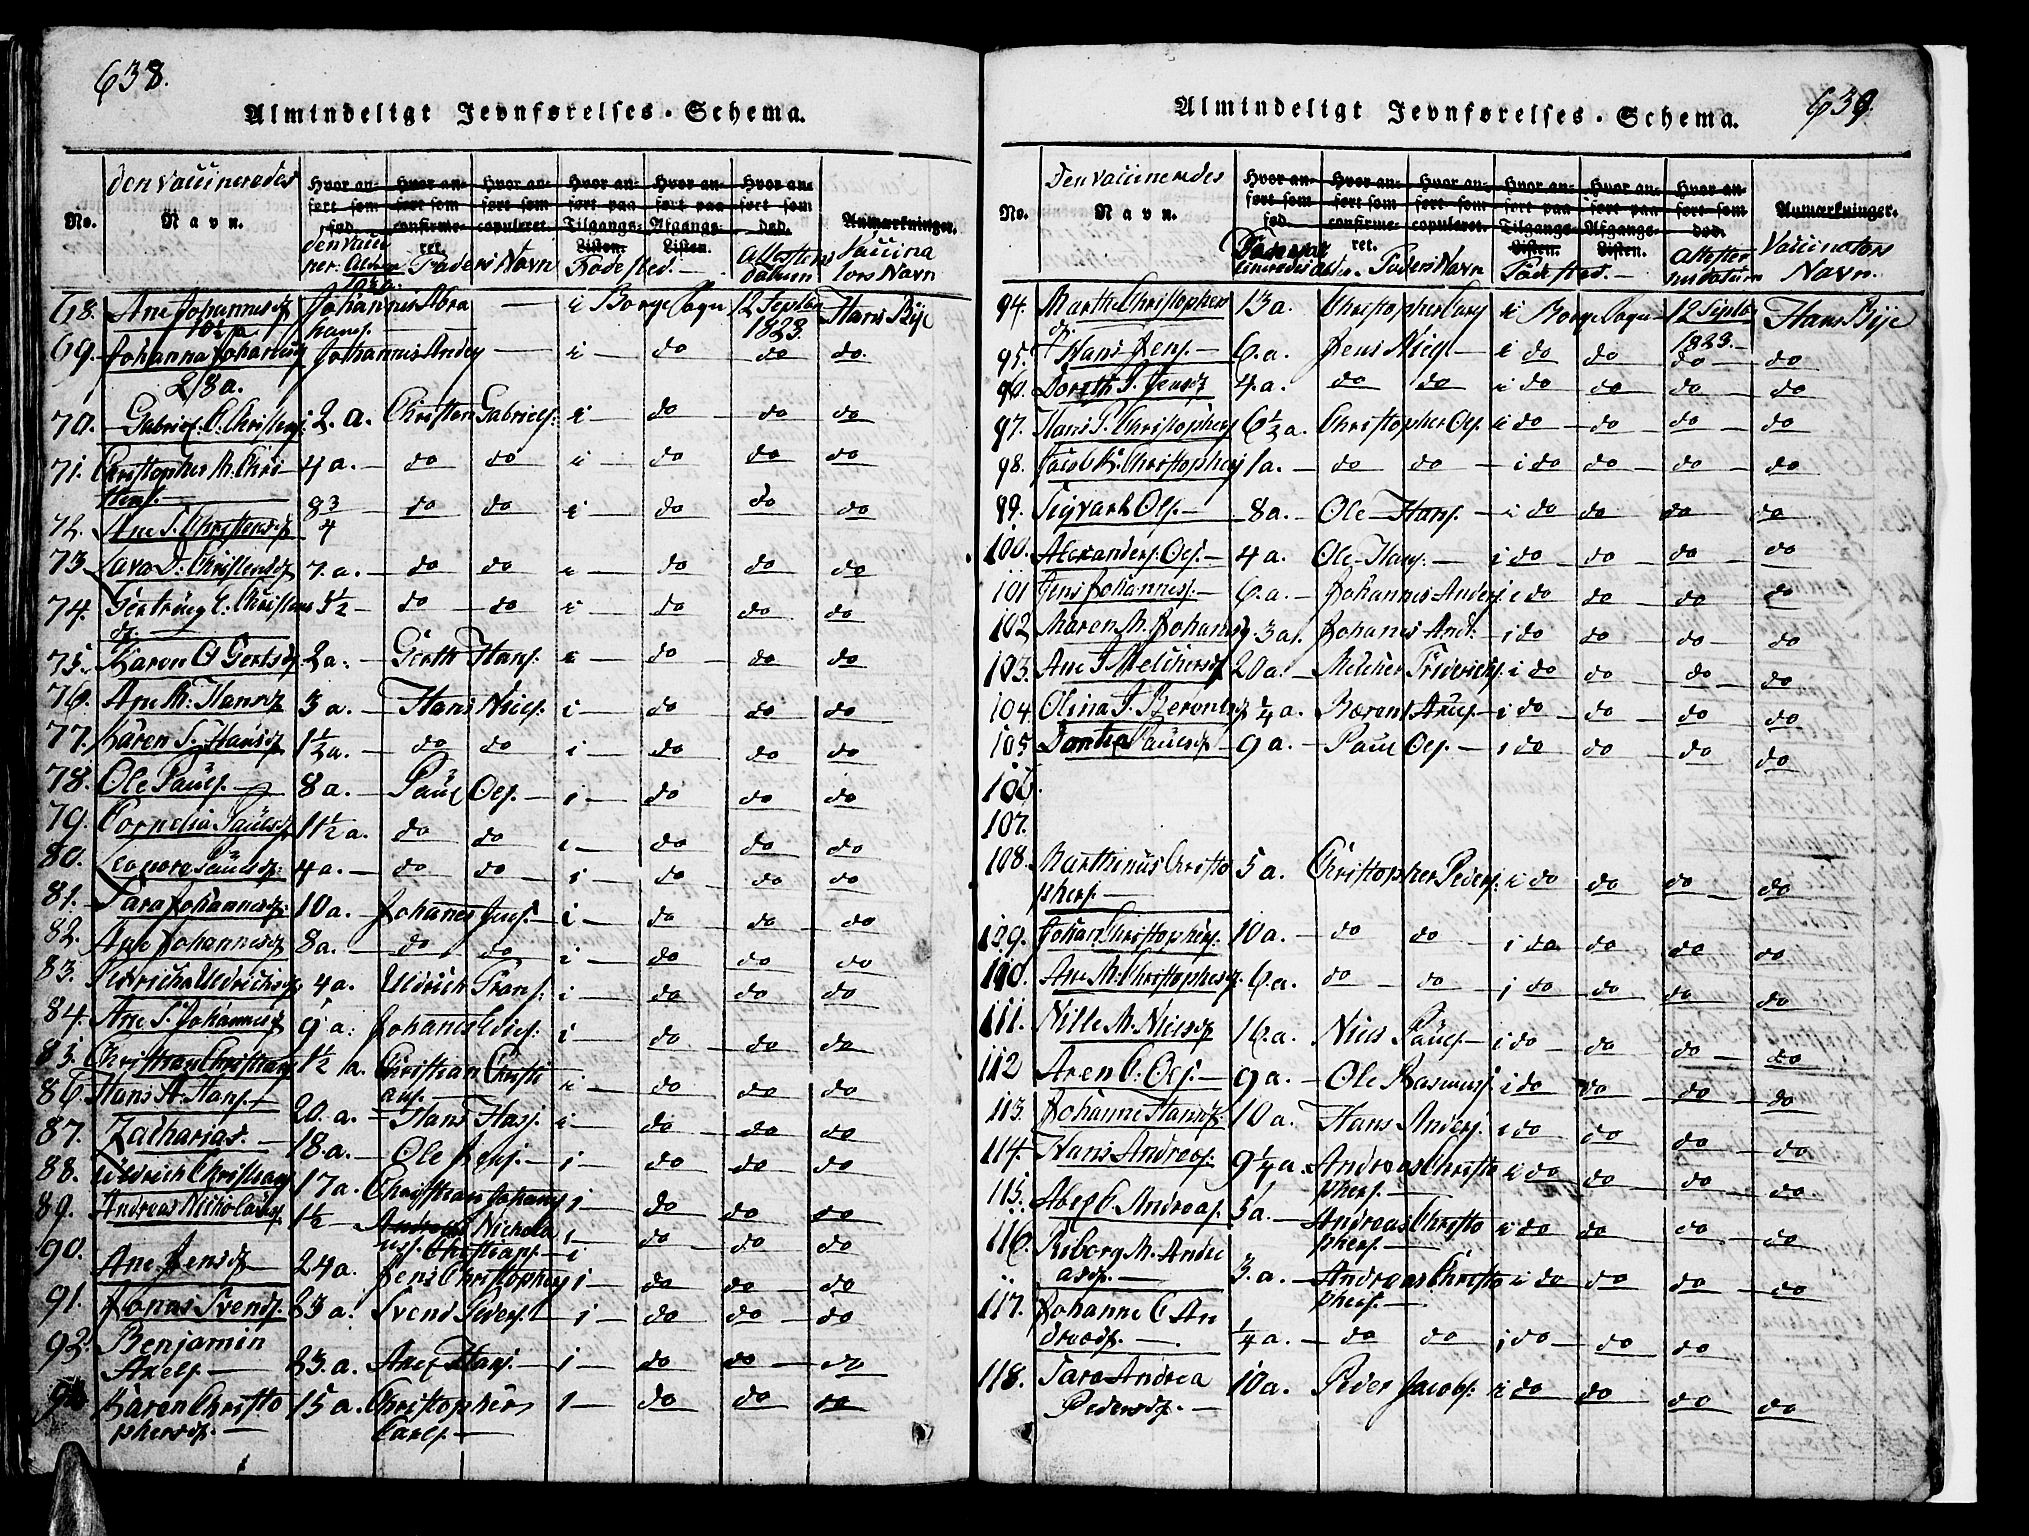 638.
Almindeligt Jevnførelses-Schema.
den Vaccineredes
No. Navn. Hvor anført som fød. Hvor anført som confirmeret. Hvor anført som copuleret. Hvor anført paa Tilgangs-Listen. Hvor anført paa Afgangs-Listen. Hvor anført som død. Anmærkninger.
Faders Navn Fødested. Attestens datum Vaccinators Navn
68. Ane Johannesd. Johannes Abrahams. — i Borge Sogn 12 Septbr 1823. Hans Bÿe
69. Johanna Johannisd. 2/3 a. Johannis Anders — i — do do do.
70. Gabriel C. Christens. 2. a. Christen Gabriels. i — do do do
71. Christopher M. Christens. 4 a. — do do i — do do do
72. Ane S. Christensd. 8 3/4 do do i — do do do
73. Lava D. Christensd. 7. a. — do do i — do do do
74. Giertrüug E. Christensd. 5½ — do do i — do do do
75. Karen O Gertsd. 2 a. — Gerth Hans. i — do do do
76. Ane M. Hansd. 3 a. — Hans Niels. i — do do do
77. Karen S. Hansd. 1½ a. — do do i — do do do
78. Ole Paüls. 8 a. — Paül Ols. — i — do do do
79. Cornelia Paülsd. 1½ a. do do i — do do do
80. Leonora Paülsd. 4 a. — do do i — do do do
81. Sara Johannesd. 10 a. Johanes Jens. — i — do do do
82. Ane Johannesd. 8 a. — do do i — do do do
83. Uldricha Uldrichsd. 4 a. Uldrich Frans. i — do do do
84. Ane S. Johannesd. 9 a. Johanes Niels. i — do do do
85. Christian Christians. 1½ a. Christian Christians. i — do do do
86. Hans A. Hans. 20. a. — Hans Hans. i — do do do
87. Zacharias. — 18 a. — Ole Jens. — i — do do do
88. Uldrich Christians. 17 a. Christian Johans. i — do do do
89. Andreas Nicholais. 1½ — Andreas Nicholaus. Christians. — i — do do do
90. Ane Jensd. 24 a. Jens Christophers. i — do do do
91. Jonas Svends. 23 a. Svend Peders. i — do do do
92. Benjamin Axels. — 23. a. Axel Hans. — i — do do do
93. Karen Christophersd. — 15 a. Christophers Carls. — i — do do do
639.
Almindeligt Jevnførelses-Schema.
Den Vaccineredes
No. Navn. Hvor anført som fød. Hvor anført som confirmeret. Hvor anført som copuleret. Hvor anført paa Tilgangs-Listen. Hvor anført paa Afgangs-Listen. Hvor anført som død. Anmærkninger.
Faders Navn Fødested. — Vaccinators Navn.
94. Marthe Christophersd. 13 a. Christopher Carls. i Borge Sogn 12 Septbr 1823. — Hans Bÿe
95. Hans Jens. — 6. a. Jens Niels. — i do do do do
96. Doreth S. Jensd. 4. a. do do i do do do do
97. Hans P. Christophers. 6½ a. Christopher Ols. i do do do do
98. Jacob K. Christophers. 1 a. — do do — i do do do do
99. Sigvart Ols. — 8 a. — Ole Hans. — i do do do do
100. Alexanders. Ols. — 4 a. Ole Hans. — i do do do do
101 Jens Johannes. — 6. a. — Johannes Anders. i do do do do
102 Maren M. Johansd. 3 a. Johanes And. — i do do do do
103. Ane J. Melchersd. 20 a. — Melcher Friderichs. i do do do do
104. Olina J. Berentsd. ¼ a. Bærent Anis. — i do do do do
105 Dorthea Paülsd. — 9 a. — Paul Ols. — i do do do do
106.
107.
108. Marthinüs Christophers. — 5 a. Christopher Peders. i do do do do
109. Johan Christophers. 10 a. — do do i do do do do
110. Ane M. Christophersd. 6. a. do do i do do do do
111. Nille M. Nielsd. 16. a. Niels Paüls. — i do do do do
112 Aren C. Ols. — 9 a. — Ole Rasmus. i do do do do
113. Johanne Hansd. 10 a. Hans Anders. i do do do do
114. Hans Andreas. 9¼ a. Andreas Christophers. — i do do do do
115. Abel C. Andreas. 5 a. — Andreas Christophers. — i do do do do
116. Reborg M. Andreasd. — 3. a. — Andreas Christophers. — i do do do do
117. Johanne C. Andreasd. — ¼ a. — do do i do do do
118. Sara Andrea Pedersd. — 10 a. Peder Jacobs. i do do do do